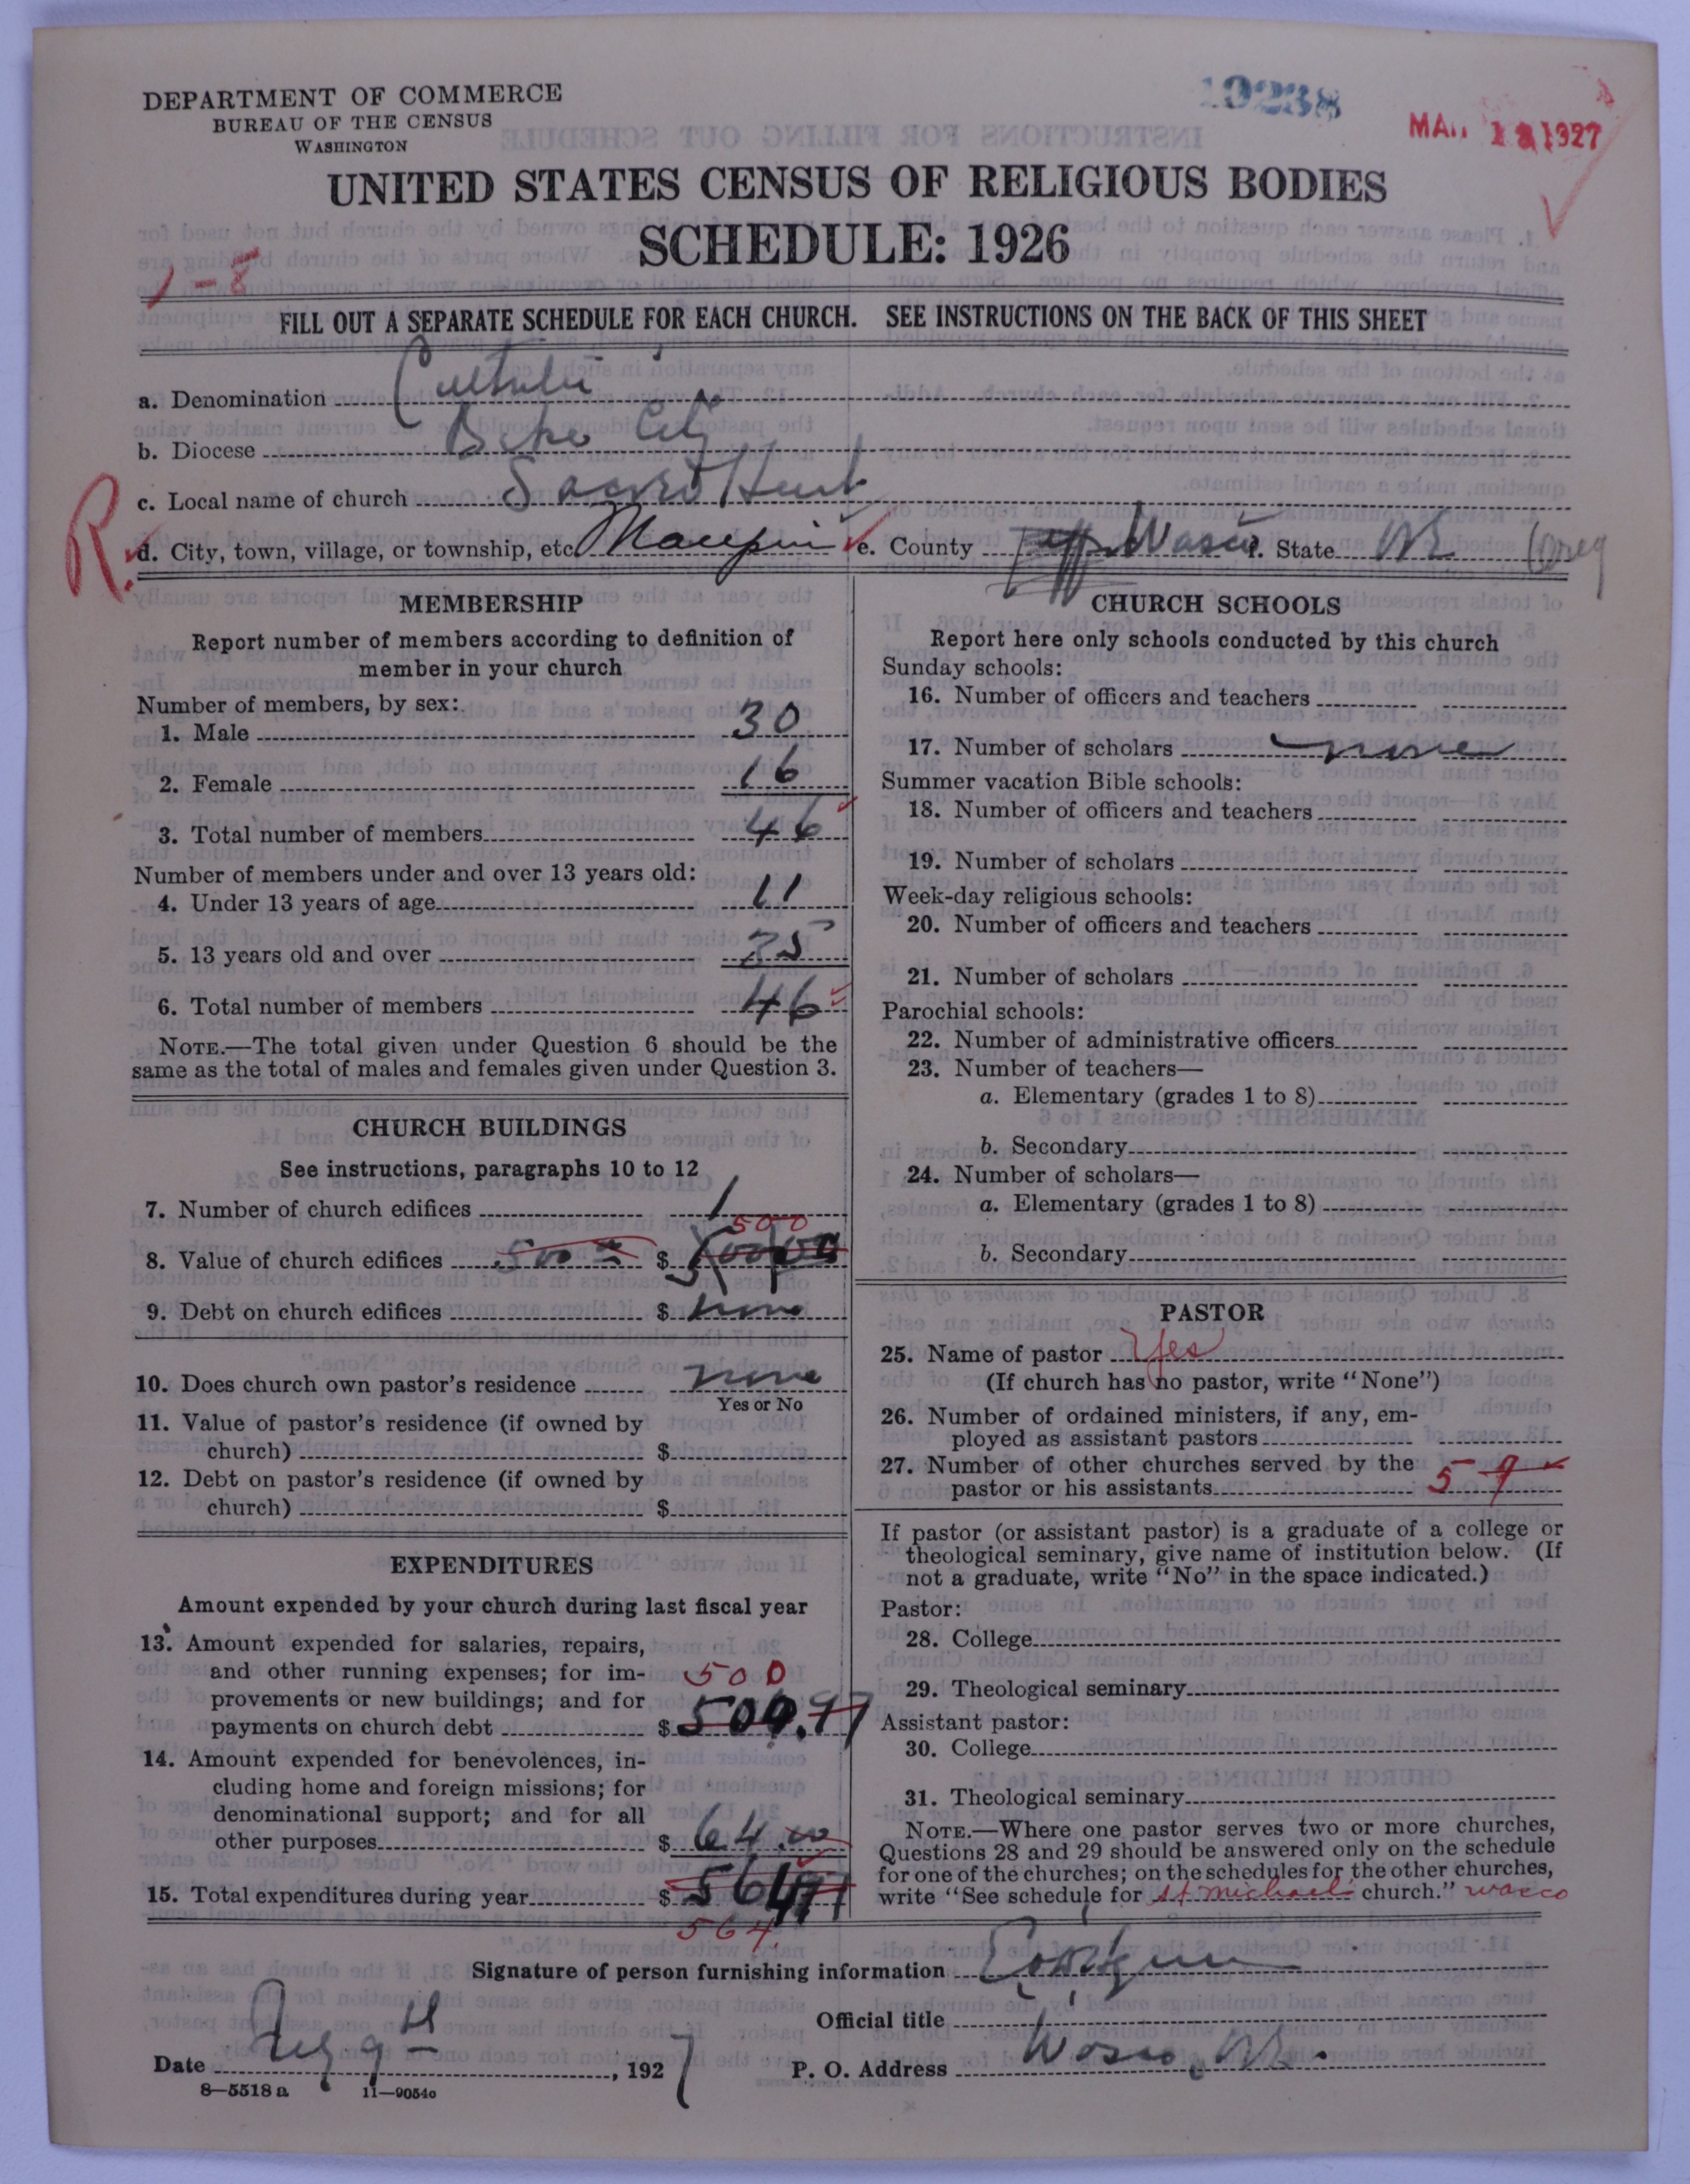 DEPARTMENT OF COMMERCE
BUREAU OF THE CENSUS
WASHINGTON
19238
MAR 18 1927
UNITED STATES CENSUS OF RELIGIOUS BODIES
SCHEDULE: 1926
1-8
FILL OUT A SEPARATE SCHEDULE FOR EACH CHURCH. SEE INSTRUCTIONS ON THE BACK OF THIS SHEET
a. Denomination
b. Diocese Baker City
c. Local name of church Sacred Heart
R. d. City, town, village, or township, etc. Maupin e. County Wasco f. State Or Oreg
MEMBERSHIP
Report number of members according to definition of
member in your church
Number of members, by sex:
1. Male 30
2. Female 16
3. Total number of members 46
Number of members under and over 13 years old:
4. Under 13 years of age 11
5. 13 years old and over 35
6. Total number of members 46
NOTE.—The total given under Question 6 should be the
same as the total of males and females given under Question 3.
CHURCH BUILDINGS
See instructions, paragraphs 10 to 12
7. Number of church edifices 1
500
8. Value of church edifices 500 $ 500 00
9. Debt on church edifices $ none
10. Does church own pastor's residence none
Yes or No
11. Value of pastor's residence (if owned by
church) $
12. Debt on pastor's residence (if owned by
church) $
EXPENDITURES
Amount expended by your church during last fiscal year
13. Amount expended for salaries, repairs,
and other running expenses; for im- 500
provements or new buildings; and for
payments on church debt $ 500.97
14. Amount expended for benevolences, in-
cluding home and foreign missions; for
denominational support; and for all
other purposes $ 64.00
15. Total expenditures during year $ 564
564.
CHURCH SCHOOLS
Report here only schools conducted by this church
Sunday schools:
16. Number of officers and teachers
17. Number of scholars none
Summer vacation Bible schools:
18. Number of officers and teachers
19. Number of scholars
Week-day religious schools:
20. Number of officers and teachers
21. Number of scholars
Parochial schools:
22. Number of administrative officers
23. Number of teachers—
a. Elementary (grades 1 to 8)
b. Secondary
24. Number of scholars—
a. Elementary (grades 1 to 8)
b. Secondary
PASTOR
25. Name of pastor Yes
(If church has no pastor, write "None")
26. Number of ordained ministers, if any, em-
ployed as assistant pastors
27. Number of other churches served by the
pastor or his assistants 5 9
If pastor (or assistant pastor) is a graduate of a college or
theological seminary, give name of institution below. (If
not a graduate, write "No" in the space indicated.)
Pastor:
28. College
29. Theological seminary
Assistant pastor:
30. College
31. Theological seminary
NOTE.—Where one pastor serves two or more churches,
Questions 28 and 29 should be answered only on the schedule
for one of the churches; on the schedules for the other churches,
write "See schedule for St Michael's church." Wasco
Signature of person furnishing information
Official title
Date 9 , 1927 P. O. Address Wasco, Or.
8—5518 a 11—9054c